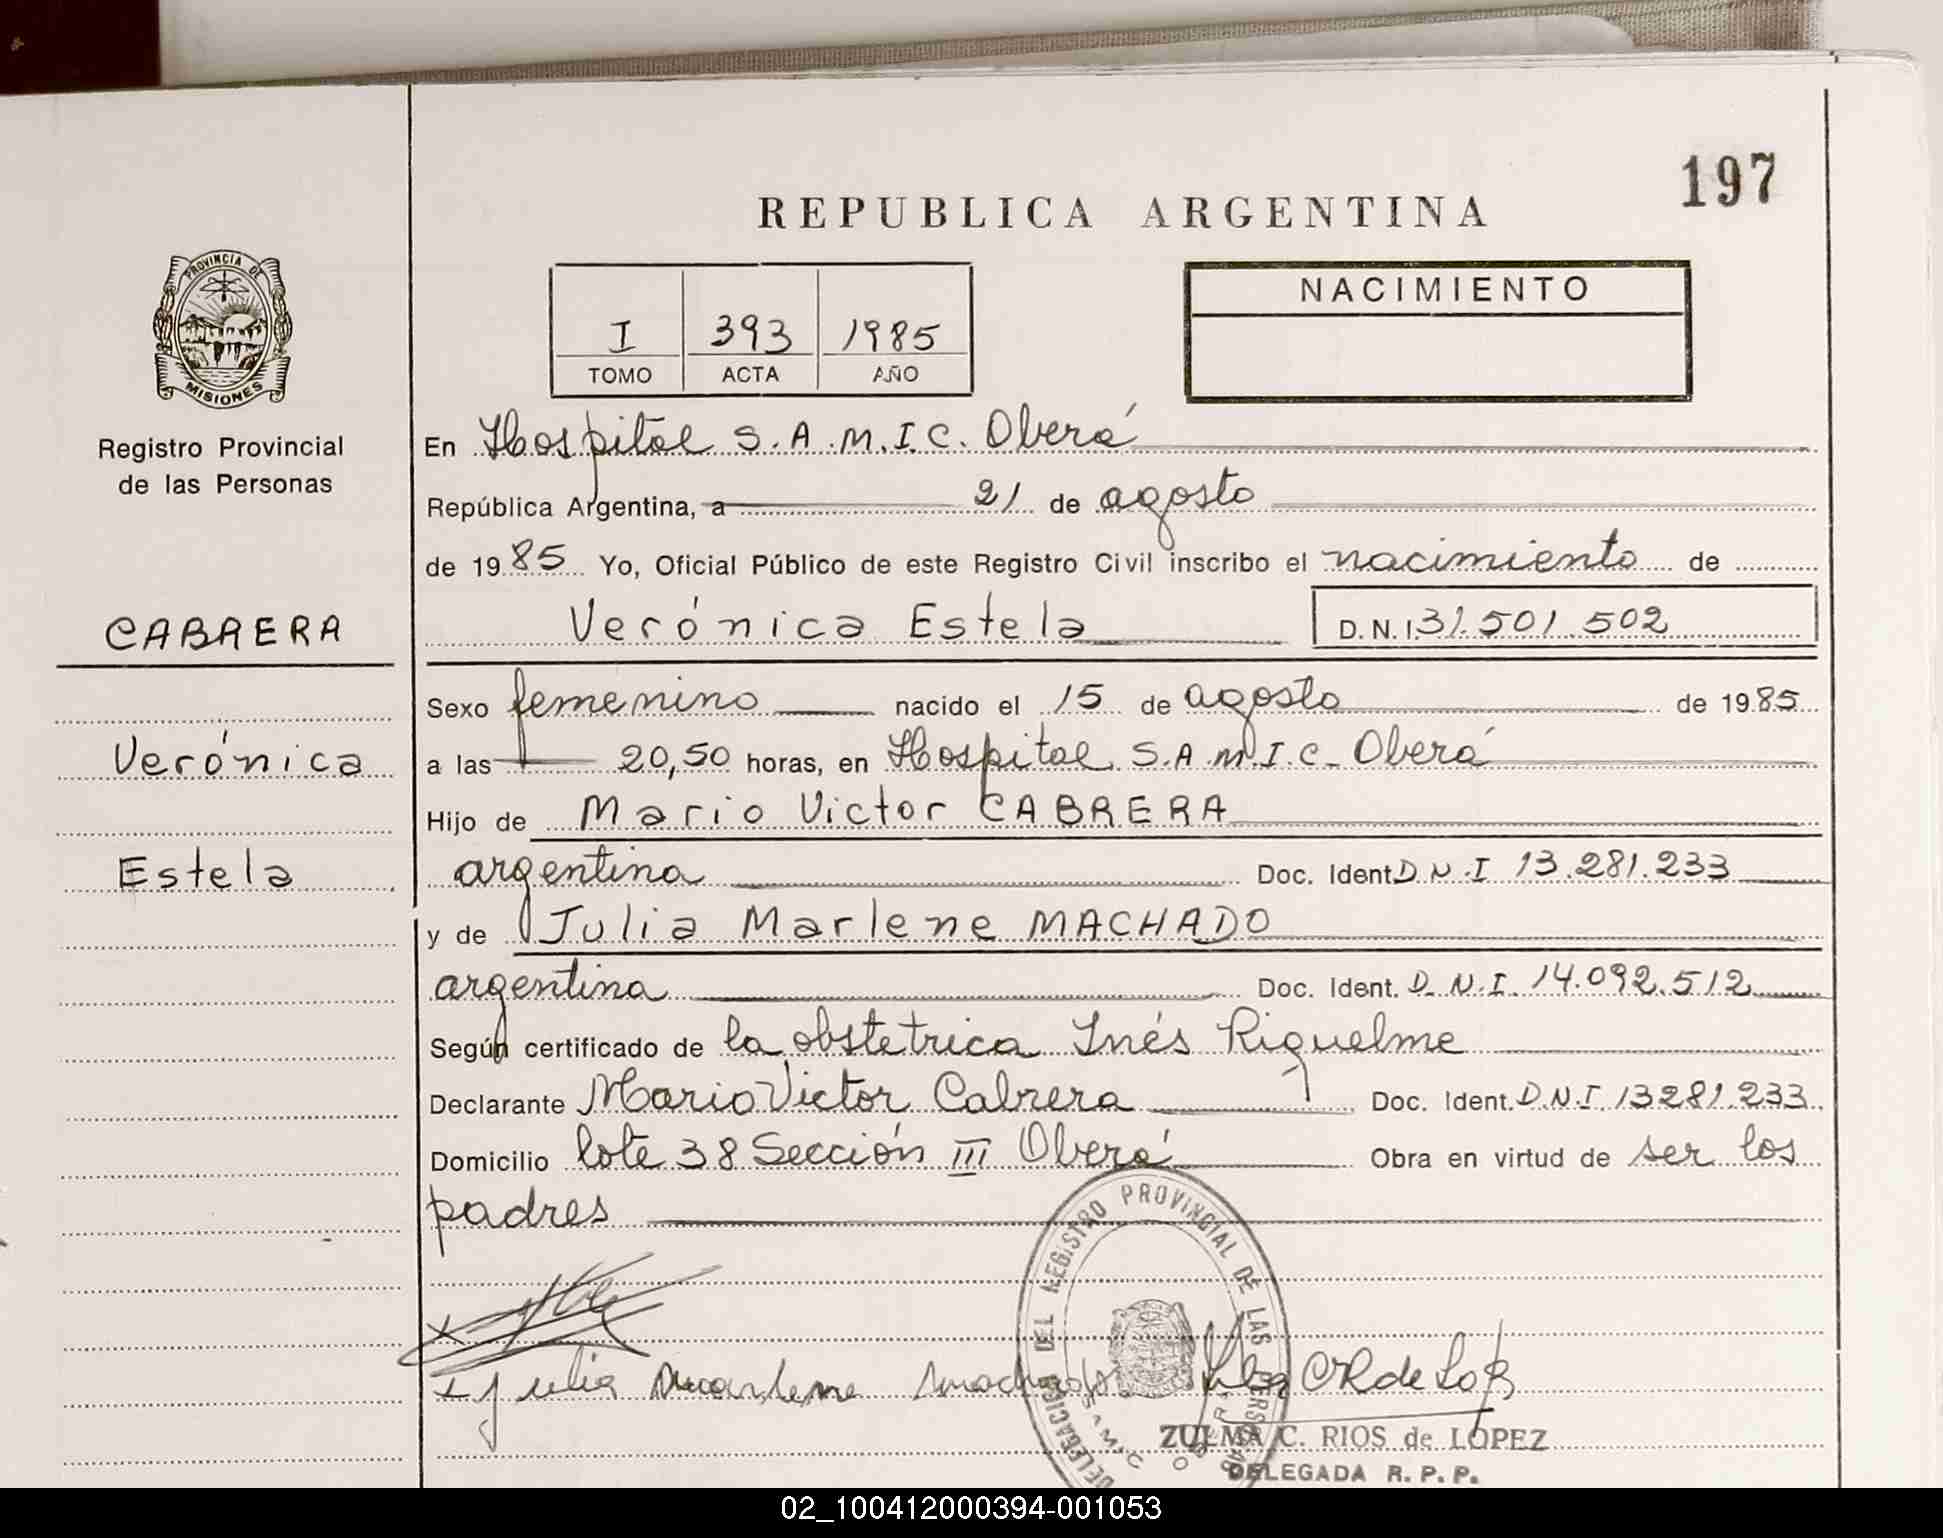 197
REPUBLICA ARGENTINA
PROVINCIA DE
MISIONES
Registro Provincial
de las Personas
CABRERA
Verónica
Estela
I 393 1985
TOMO ACTA AÑO
NACIMIENTO
En Hospital S.A.M.I.C. Oberá
República Argentina, a 21 de agosto
de 1985 Yo, Oficial Público de este Registro Civil inscribo el nacimiento de
Verónica Estela D.N.I. 31.501.502
Sexo femenino nacido el 15 de agosto de 1985
a las 20,50 horas, en Hospital S.A.M.I.C. Oberá
Hijo de Mario Victor CABRERA
argentina Doc. Ident D.N.I 13.281.233
y de Julia Marlene MACHADO
argentina Doc. Ident. D.N.I. 14.092.512
Según certificado de la obstetrica Inés Riquelme
Declarante Mario Victor Cabrera Doc. Ident. D.N.I. 13281.233
Domicilio lote 38 Sección III Oberá Obra en virtud de ser los
padres
Julia Marlene Machado
DELEGACION DEL REGISTRO PROVINCIAL DE LAS PERSONAS
ZULMA C. RIOS de LOPEZ
DELEGADA R. P. P.
02_100412000394-001053